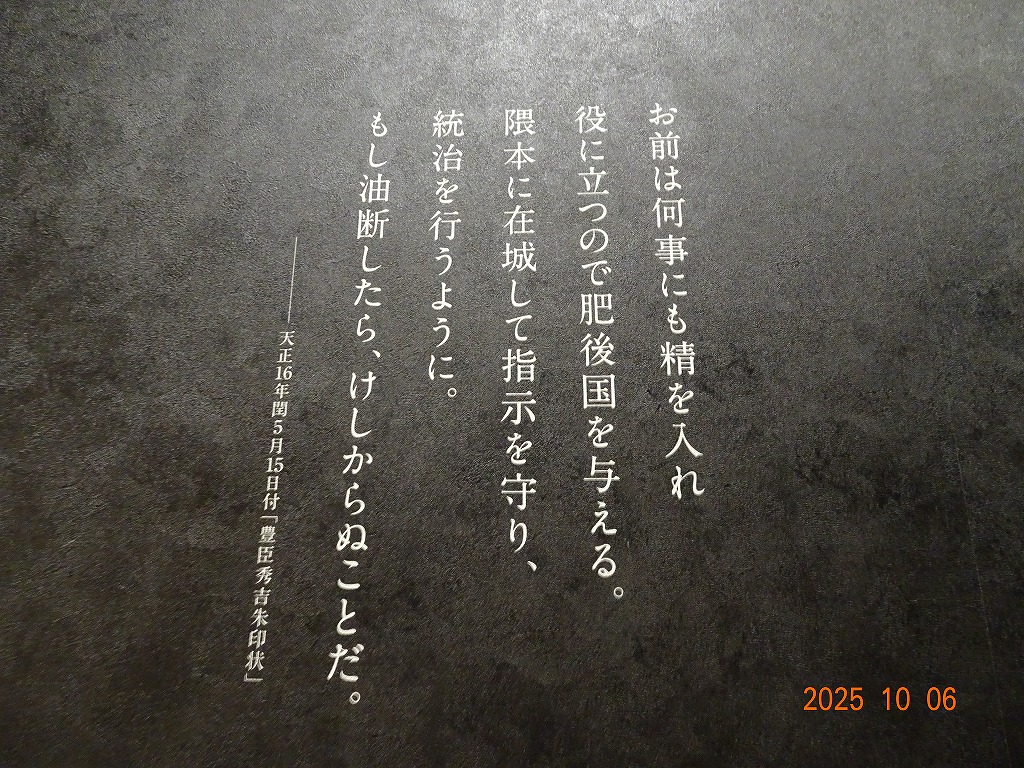 お前は何事にも精を入れ
役に立つので肥後国を与える。
隈本に在城して指示を守り、
統治を行うように。
もし油断したら、けしからぬことだ。
――天正16年閏5月15日付「豊臣秀吉朱印状」
2025 10 06